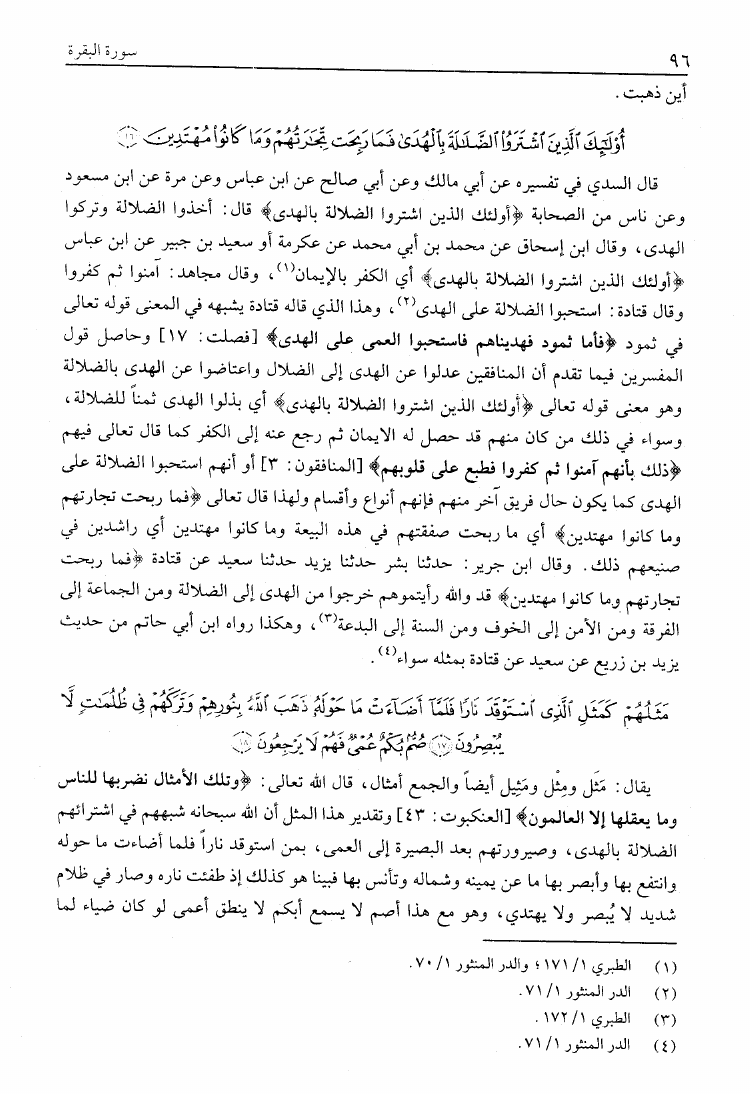 ٩٦ سورة البقرة
أين ذهبت.
أُوْلَٰٓئِكَ ٱلَّذِينَ ٱشْتَرَوُاْ ٱلضَّلَٰلَةَ بِٱلْهُدَىٰ فَمَا رَبِحَت تِّجَٰرَتُهُمْ وَمَا كَانُواْ مُهْتَدِينَ ١٦
قال السدي في تفسيره عن أبي مالك وعن أبي صالح عن ابن عباس وعن مرة عن ابن مسعود
وعن ناس من الصحابة ﴿أولئك الذين اشتروا الضلالة بالهدى﴾ قال: أخذوا الضلالة وتركوا
الهدى، وقال ابن إسحاق عن محمد بن أبي محمد عن عكرمة أو سعيد بن جبير عن ابن عباس
﴿أولئك الذين اشتروا الضلالة بالهدى﴾ أي الكفر بالإيمان(١)، وقال مجاهد: آمنوا ثم كفروا
وقال قتادة: استحبوا الضلالة على الهدى(٢)، وهذا الذي قاله قتادة يشبهه في المعنى قوله تعالى
في ثمود ﴿فأما ثمود فهديناهم فاستحبوا العمى على الهدى﴾ [فصلت: ١٧] وحاصل قول
المفسرين فيما تقدم أن المنافقين عدلوا عن الهدى إلى الضلال واعتاضوا عن الهدى بالضلالة
وهو معنى قوله تعالى ﴿أولئك الذين اشتروا الضلالة بالهدى﴾ أي بذلوا الهدى ثمناً للضلالة،
وسواء في ذلك من كان منهم قد حصل له الايمان ثم رجع عنه إلى الكفر كما قال تعالى فيهم
﴿ذلك بأنهم آمنوا ثم كفروا فطبع على قلوبهم﴾ [المنافقون: ٣] أو أنهم استحبوا الضلالة على
الهدى كما يكون حال فريق آخر منهم فإنهم أنواع وأقسام ولهذا قال تعالى ﴿فما ربحت تجارتهم
وما كانوا مهتدين﴾ أي ما ربحت صفقتهم في هذه البيعة وما كانوا مهتدين أي راشدين في
صنيعهم ذلك. وقال ابن جرير: حدثنا بشر حدثنا يزيد حدثنا سعيد عن قتادة ﴿فما ربحت
تجارتهم وما كانوا مهتدين﴾ قد والله رأيتموهم خرجوا من الهدى إلى الضلالة ومن الجماعة إلى
الفرقة ومن الأمن إلى الخوف ومن السنة إلى البدعة(٣)، وهكذا رواه ابن أبي حاتم من حديث
يزيد بن زريع عن سعيد عن قتادة بمثله سواء(٤).
مَثَلُهُمْ كَمَثَلِ ٱلَّذِى ٱسْتَوْقَدَ نَارًا فَلَمَّآ أَضَآءَتْ مَا حَوْلَهُۥ ذَهَبَ ٱللَّهُ بِنُورِهِمْ وَتَرَكَهُمْ فِى ظُلُمَٰتٍ لَّا
يُبْصِرُونَ ١٧ صُمٌّۢ بُكْمٌ عُمْىٌ فَهُمْ لَا يَرْجِعُونَ ١٨
يقال: مَثَل ومِثْل ومَثِيل أيضاً والجمع أمثال، قال الله تعالى: ﴿وتلك الأمثال نضربها للناس
وما يعقلها إلا العالمون﴾ [العنكبوت: ٤٣] وتقدير هذا المثل أن الله سبحانه شبههم في اشترائهم
الضلالة بالهدى، وصيرورتهم بعد البصيرة إلى العمى، بمن استوقد ناراً فلما أضاءت ما حوله
وانتفع بها وأبصر بها ما عن يمينه وشماله وتأنس بها فبينا هو كذلك إذ طفئت ناره وصار في ظلام
شديد لا يُبصر ولا يهتدي، وهو مع هذا أصم لا يسمع أبكم لا ينطق أعمى لو كان ضياء لما
(١) الطبري ١/ ١٧١؛ والدر المنثور ١/ ٧٠.
(٢) الدر المنثور ١/ ٧١.
(٣) الطبري ١/ ١٧٢.
(٤) الدر المنثور ١/ ٧١.